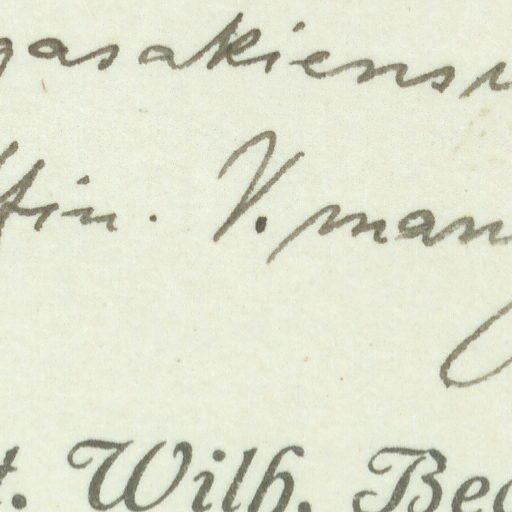 gasakiens
tin. V. man
t. Wilh. Bec